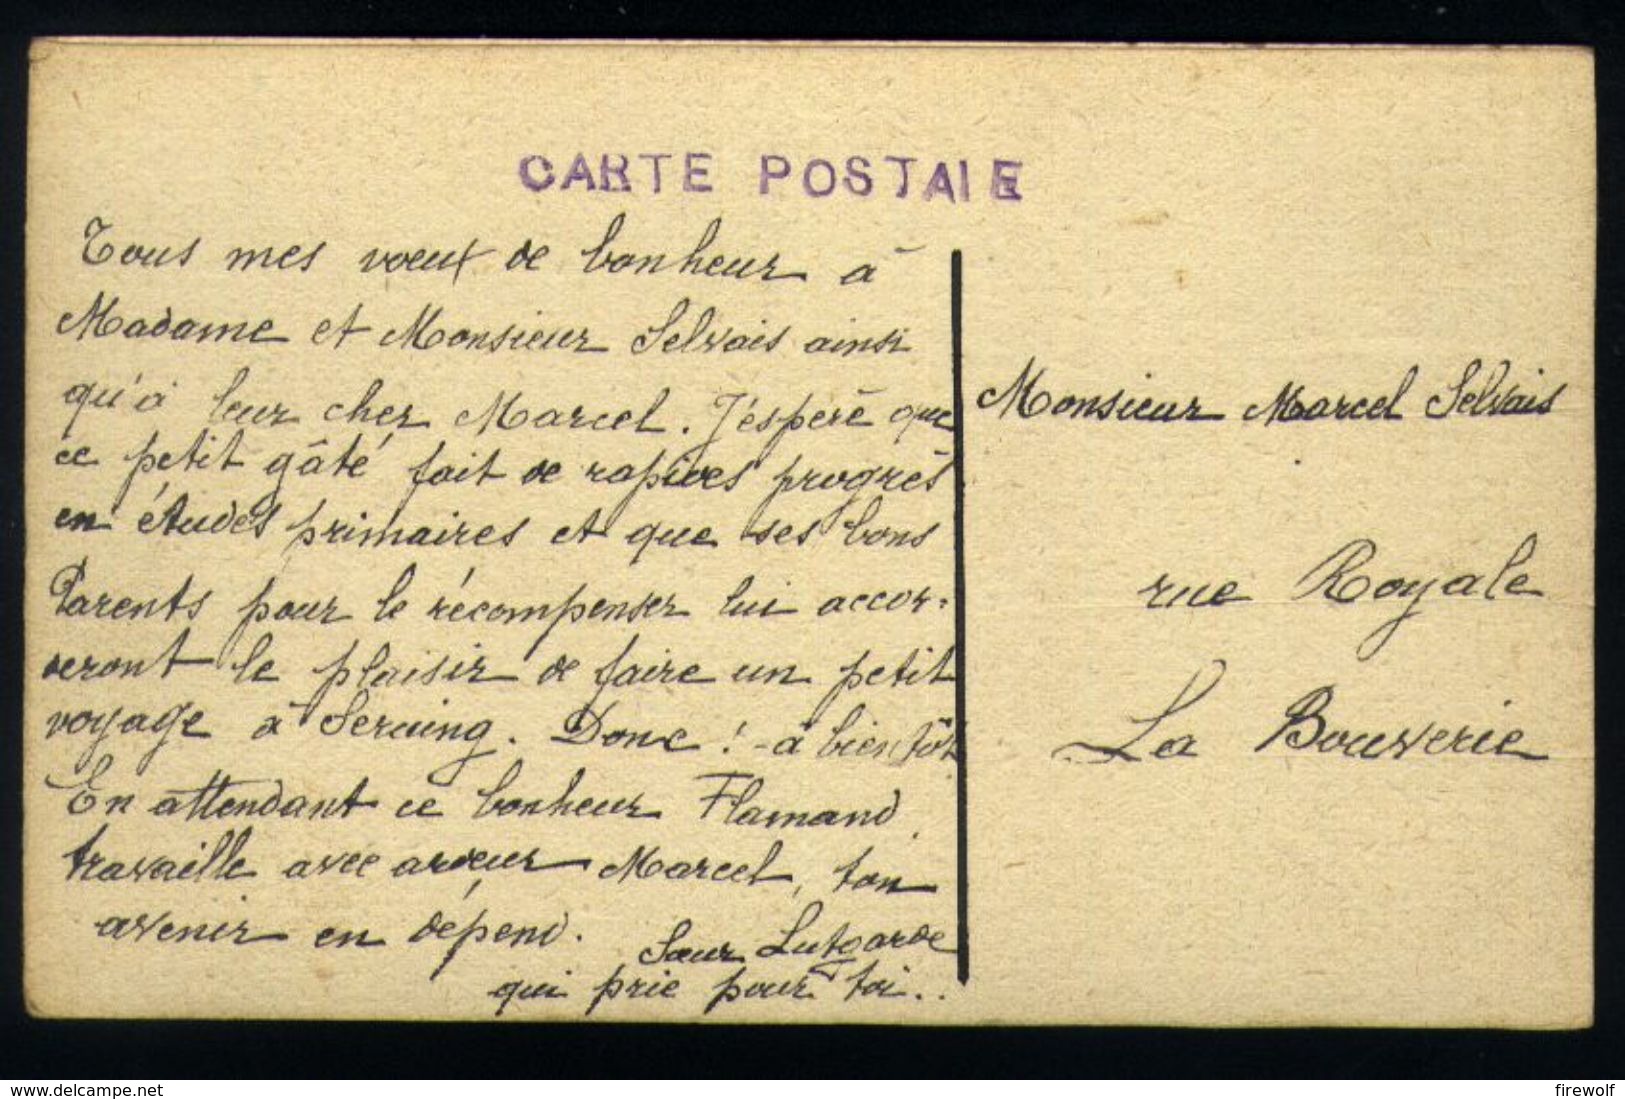 CARTE POSTALE
Tous mes voeux de bonheur à
Madame et Monsieur Selvais ainsi
qu'à leur cher Marcel. J'espère que
ce petit gâté fait de rapides progrès
en études primaires et que ses bons
Parents pour le récompenser lui accor-
deront le plaisir de faire un petit
voyage à Seraing. Donc ! - à bientôt
En attendant ce bonheur Flamand
travaille avec ardeur Marcel, ton
avenir en dépend.
Sœur Lutgarde
qui prie pour toi..
Monsieur Marcel Selvais
rue Royale
La Bouverie
www.delcampe.net
firewolf